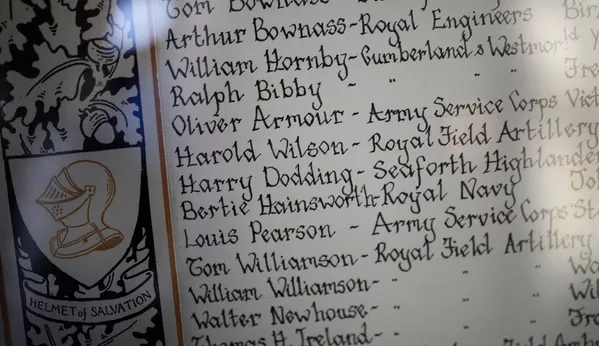 Tom Bownass -
Arthur Bownass - Royal Engineers
William Hornby - Cumberland & Westmor'd
Ralph Bibby - " " "
Oliver Armour - Army Service Corps
Harold Wilson - Royal Field Artillery
Harry Dodding - Seaforth Highlander
Bertie Hainsworth - Royal Navy
Louis Pearson - Army Service Corps
Tom Williamson - Royal Field Artillery
William Williamson - " " "
Walter Newhouse - " " "
Thomas H. Ireland - "
Field
HELMET of SALVATION